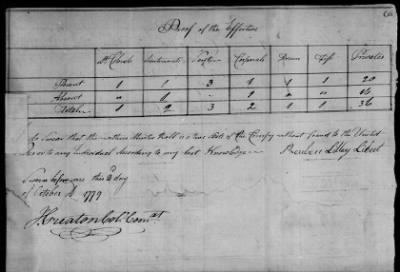 Proof of the Effective
Lieutenants Corporals Drums Fife Privates
Present 1 1 3 1 1 1 20
Absent " 1 " 1 " " 16
Total 1 2 3 2 1 1 36
I do Swear that the within Muster Roll is a true State of the Compy without fraud to the United
States or to any individual According to my best Knowledge
Reuben Lilley Lieut
Sworn before me this 2 day
of October 1779